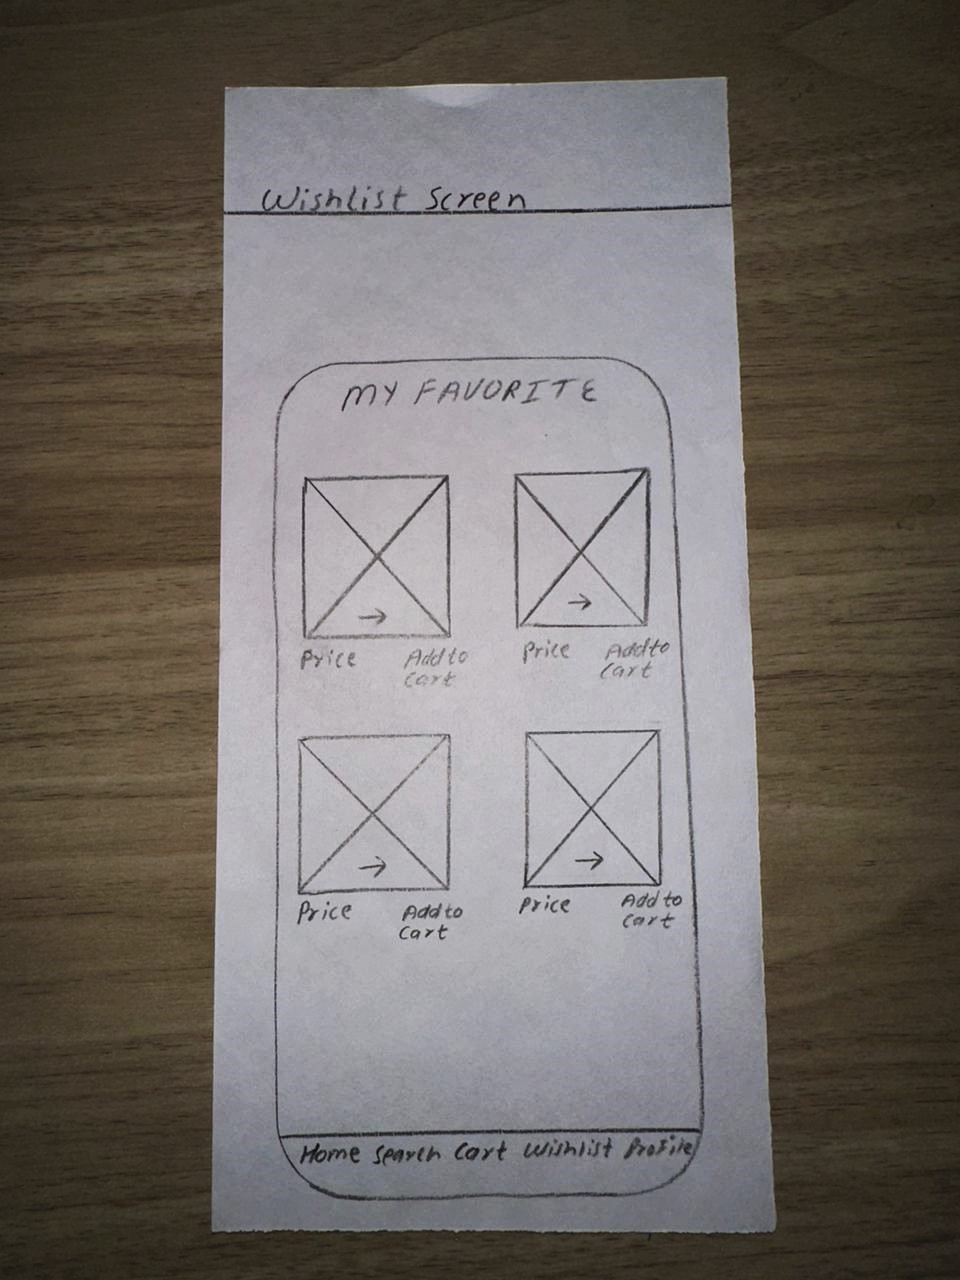 Wishlist Screen
MY FAVORITE
Price Add to Cart
Price Add to Cart
Price Add to Cart
Price Add to Cart
Home Search Cart Wishlist Profile